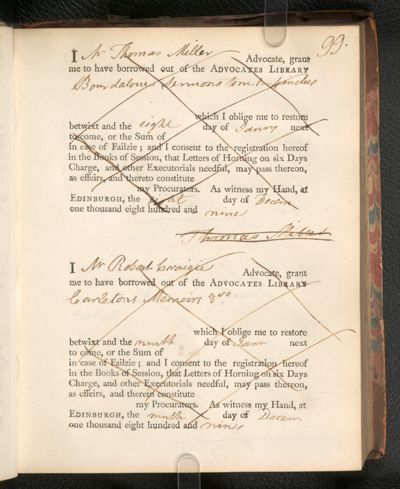 99.
I Mr Thomas Miller Advocate, grant
me to have borrowed out of the ADVOCATES LIBRARY
Bourdaloue Sermons tom 1
which I oblige me to restore
betwixt and the eight day of Janry next
to come, or the Sum of
in case of Failzie; and I consent to the registration hereof
in the Books of Session, that Letters of Horning on six Days
Charge, and other Executorials needful, may pass thereon,
as effeirs, and thereto constitute
my Procurators. As witness my Hand, at
EDINBURGH, the eight day of Decem
one thousand eight hundred and nine
Thomas Miller
I Mr Robert Craigie Advocate, grant
me to have borrowed out of the ADVOCATES LIBRARY
Carletons Memoirs 8vo
which I oblige me to restore
betwixt and the ninth day of Janr next
to come, or the Sum of
in case of Failzie; and I consent to the registration hereof
in the Books of Session, that Letters of Horning on six Days
Charge, and other Executorials needful, may pass thereon,
as effeirs, and thereto constitute
my Procurators. As witness my Hand, at
EDINBURGH, the ninth day of Decem
one thousand eight hundred and nine